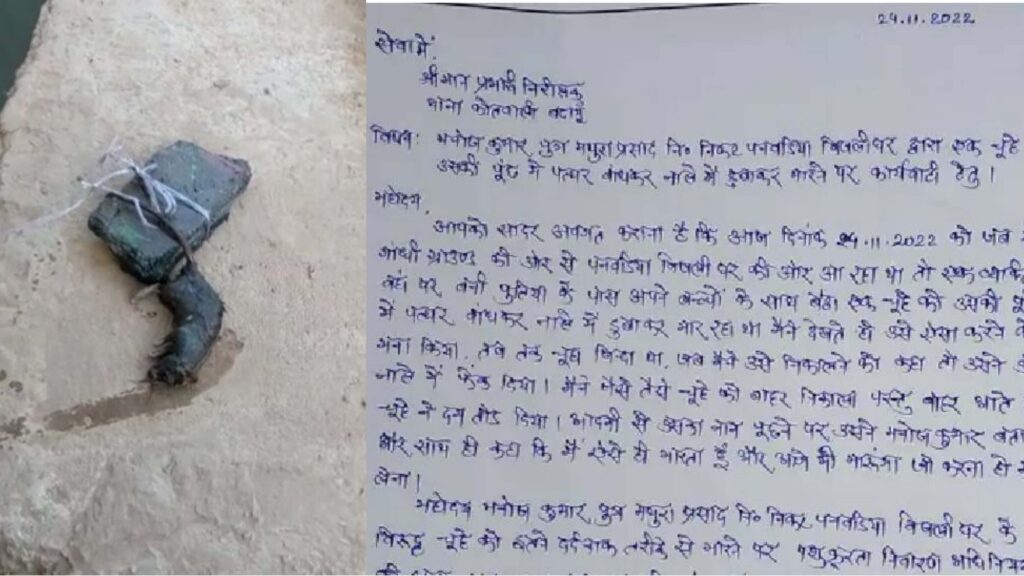 24.11.2022
सेवा में,
श्रीमान प्रभारी निरीक्षक
थाना कोतवाली बदायूँ
विषय: मनोज कुमार पुत्र मथुरा प्रसाद नि० निकट पनवडिया बिजलीघर द्वारा एक चूहे
उसकी पूंछ में पत्थर बांधकर नाले में डुबाकर मारने पर कार्यवाही हेतु।
महोदय,
आपको सादर अवगत कराना है कि आज दिनांक 24.11.2022 को जब
गांधी ग्राउण्ड की ओर से पनवडिया बिजली घर की ओर आ रहा था तो एक व्यक्ति
वहां पर बनी पुलिया के पास अपने बच्चों के साथ बैठा एक चूहे को उसकी
में पत्थर बांधकर नाले में डुबाकर मार रहा था मैंने देखते ही उसे ऐसा करने
मना किया, तब तक चूहा जिन्दा था, जब मैंने उसे निकालने को कहा तो उसने
नाले में फेंक दिया। मैंने जैसे तैसे चूहे को बाहर निकाला परन्तु बाहर आते
चूहे ने दम तोड़ दिया। आदमी से उसका नाम पूछने पर उसने मनोज कुमार
और साथ ही कहा कि मैं ऐसे ही मारता हूँ और आगे भी मारूंगा जो करना हो
लेना।
महोदय मनोज कुमार पुत्र मथुरा प्रसाद नि० निकट पनवडिया बिजली घर के
विरुद्ध चूहे को इतने दर्दनाक तरीके से मारने पर पशु क्रूरता निवारण